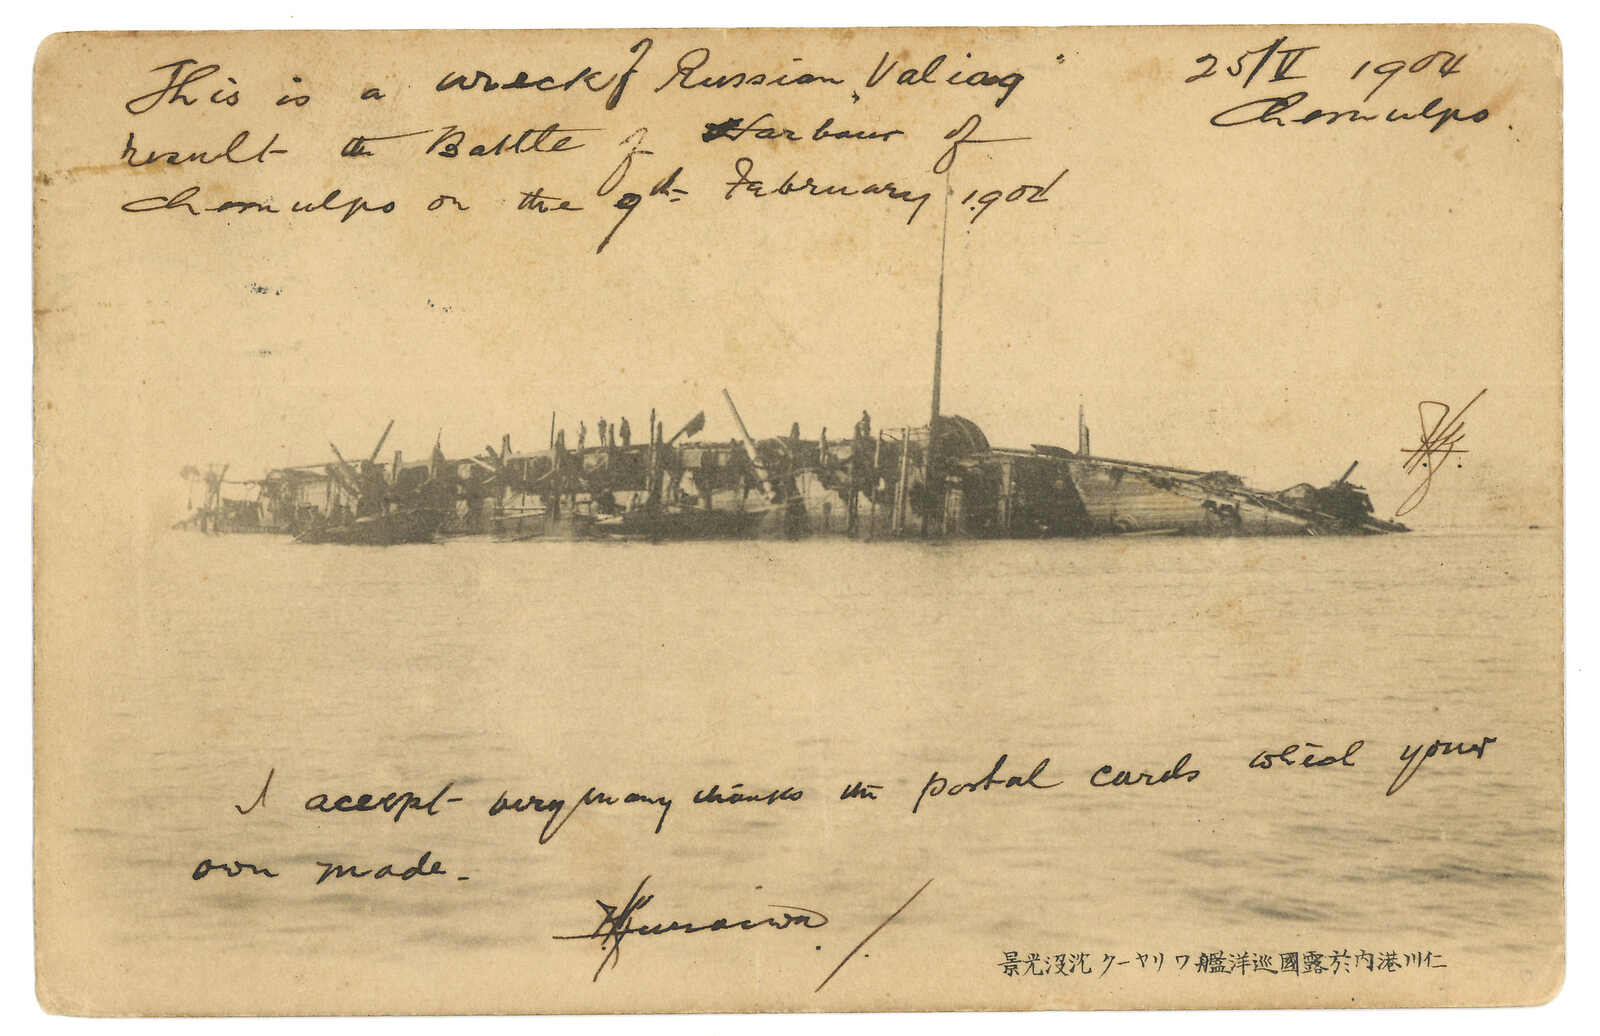 This is a wreck of Russian „Valiag“
25/V 1904
Chemulpo.
result the Battle of Harbour of
Chemulpo on the 9th February 1904
I accept very many thanks the postal cards which your
own made.
仁川港内於露國巡洋艦ワリヤーク沈沒光景